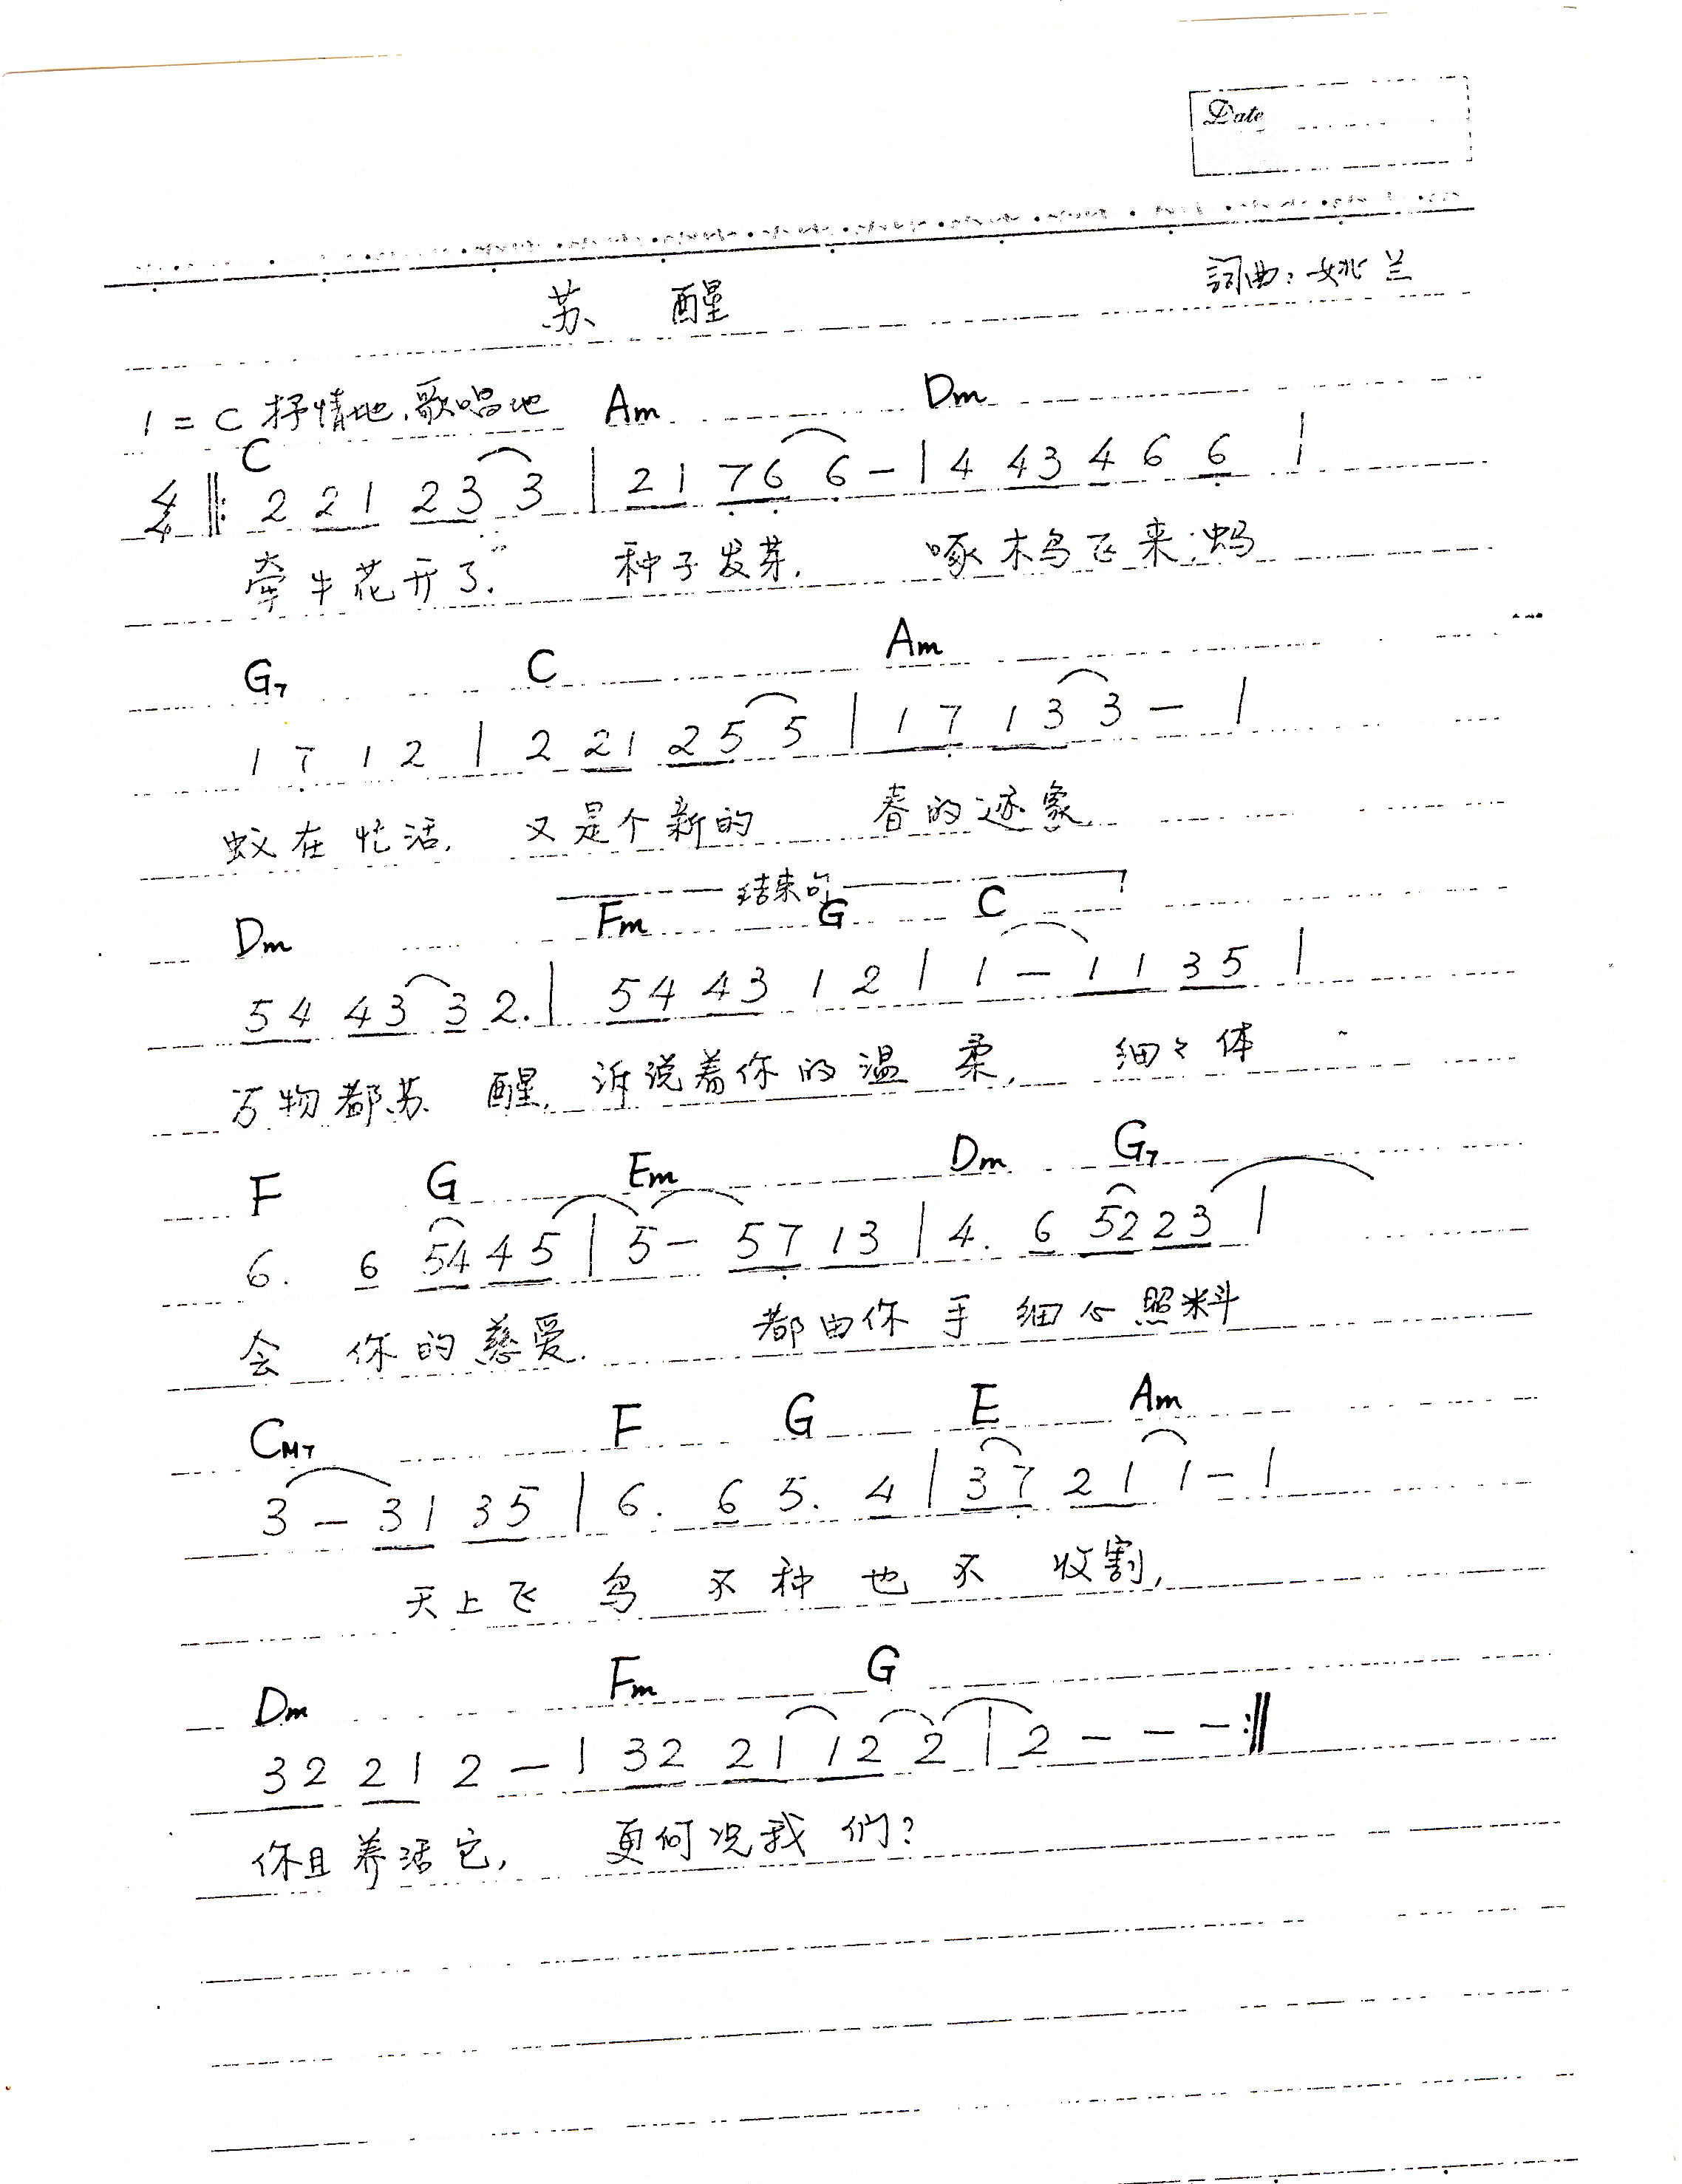 Date
苏 醒
詞曲：姚兰
1 = C 抒情地,歌唱地 Am Dm
C
4/4 ‖: 2 21 23 3 | 21 76 6 - | 4 43 4 6 6 |
牵牛花开了. 种子发芽, 啄木鸟飞来,蚂
G7 C Am
1 7 1 2 | 2 21 25 5 | 17 13 3 - |
蚁在忙活, 又是个新的 春的迹象
结束句
Dm Fm G C
54 43 3 2. | 54 43 1 2 | 1 - 11 35 |
万物都苏 醒, 诉说着你的温 柔, 细々体
F G Em Dm G7
6. 6 54 45 | 5 - 57 13 | 4. 6 52 23 |
会 你的慈爱. 都由你手 细心照料
CM7 F G E Am
3 - 31 35 | 6. 6 5. 4 | 37 21 1 - |
天上飞 鸟 不种也不 收割,
Dm Fm G
32 21 2 - | 32 21 12 2 | 2 - - - :‖
你且养活它, 更何况我 们?